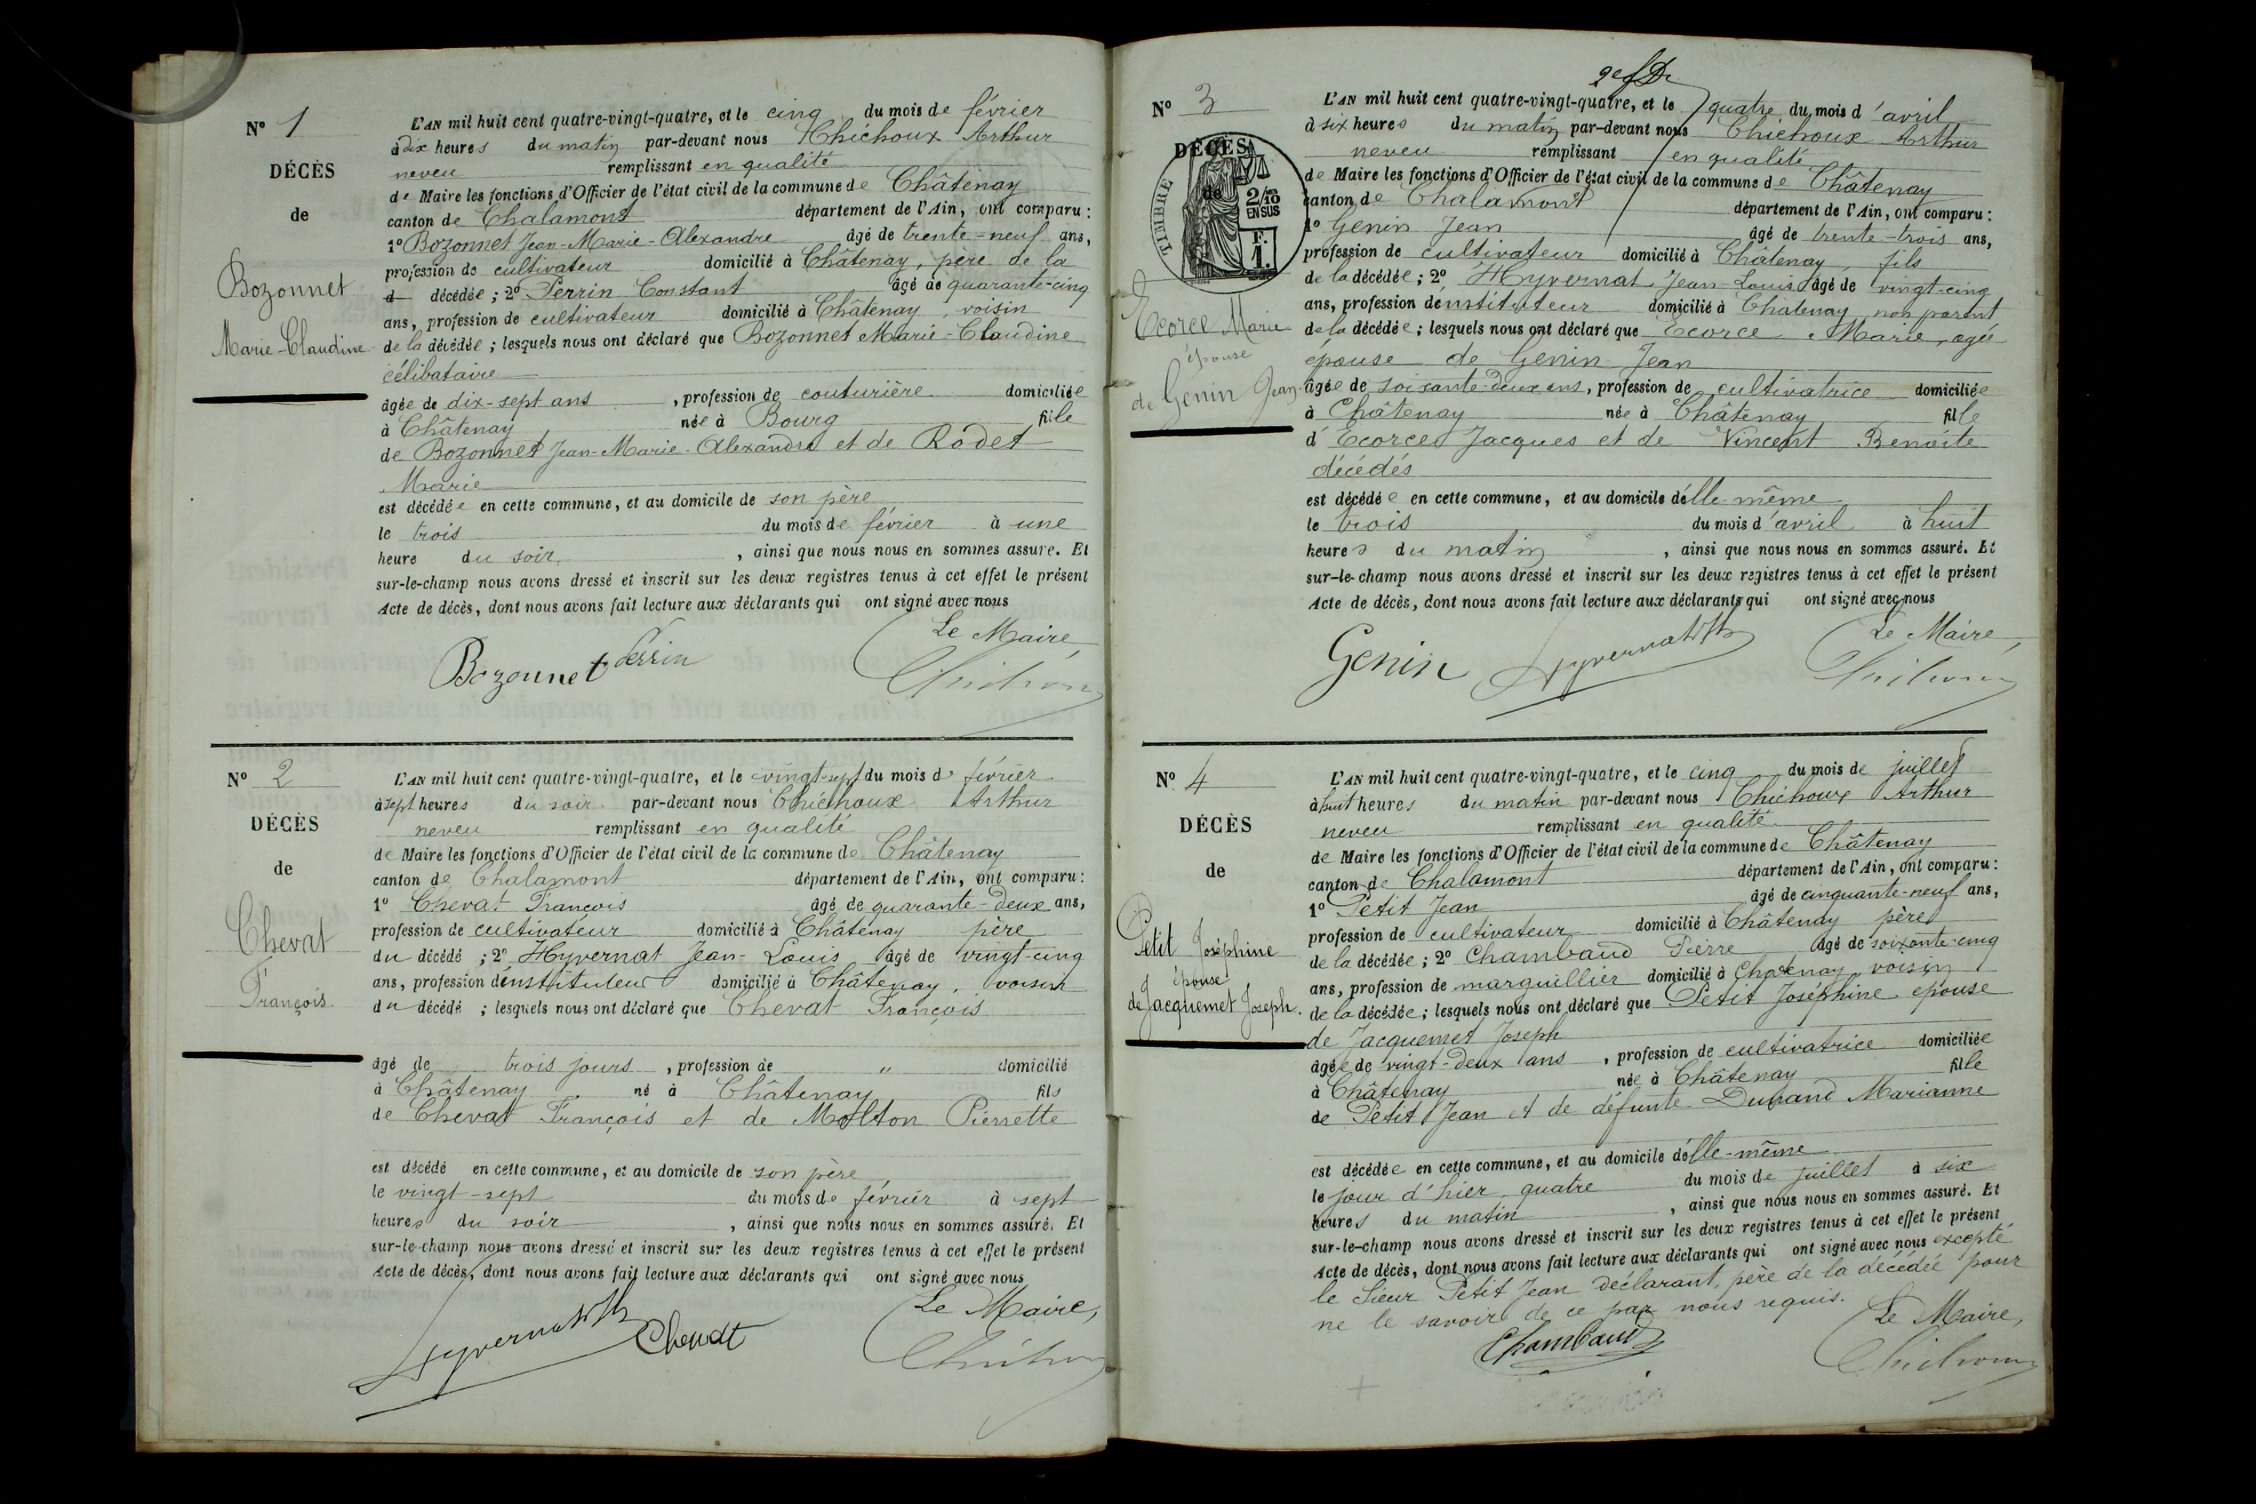 N° 1
DÉCÈS
de
Bozonnet
Marie-Claudine
L'AN mil huit cent quatre-vingt-quatre, et le cinq du mois de février
à dix heures du matin par-devant nous Chichoux Arthur
neveu remplissant en qualité
de Maire les fonctions d'Officier de l'état civil de la commune de Châtenay
canton de Chalamont département de l'Ain, ont comparu :
1° Bozonnet Jean-Marie-Alexandre âgé de trente-neuf ans,
profession de cultivateur domicilié à Châtenay, père de la
d décédée ; 2° Perrin Constant âgé de quarante-cinq
ans, profession de cultivateur domicilié à Châtenay, voisin
de la décédée ; lesquels nous ont déclaré que Bozonnet Marie-Claudine
célibataire
âgée de dix-sept ans, profession de couturière domiciliée
à Châtenay née à Bourg fille
de Bozonnet Jean-Marie-Alexandre et de Rodet
Marie
est décédée en cette commune, et au domicile de son père
le trois du mois de février à une
heure du soir, ainsi que nous nous en sommes assuré. Et
sur-le-champ nous avons dressé et inscrit sur les deux registres tenus à cet effet le présent
Acte de décès, dont nous avons fait lecture aux déclarants qui ont signé avec nous
Le Maire,
Bozonnet Perrin
N° 2
DÉCÈS
de
Chevat
François
L'AN mil huit cent quatre-vingt-quatre, et le vingt-sept du mois de février
à sept heures du soir par-devant nous Chichoux Arthur
neveu remplissant en qualité
de Maire les fonctions d'Officier de l'état civil de la commune de Châtenay
canton de Chalamont département de l'Ain, ont comparu :
1° Chevat François âgé de quarante-deux ans,
profession de cultivateur domicilié à Châtenay père
du décédé ; 2° Hyvernat Jean-Louis âgé de vingt-cinq
ans, profession d'instituteur domicilié à Châtenay, voisin
du décédé ; lesquels nous ont déclaré que Chevat François
âgé de trois jours, profession de " domicilié
à Châtenay né à Châtenay fils
de Chevat François et de Molton Pierrette
est décédé en cette commune, et au domicile de son père
le vingt-sept du mois de février à sept
heures du soir, ainsi que nous nous en sommes assuré. Et
sur-le-champ nous avons dressé et inscrit sur les deux registres tenus à cet effet le présent
Acte de décès, dont nous avons fait lecture aux déclarants qui ont signé avec nous
Le Maire,
Hyvernat Chevat
N° 3
DÉCÈS
de
TIMBRE
2/10
EN SUS
F.
1.
Ecorce Marie
épouse
de Genin Jean.
L'AN mil huit cent quatre-vingt-quatre, et le quatre du mois d'avril
à six heures du matin par-devant nous Chichoux Arthur
neveu remplissant en qualité
de Maire les fonctions d'Officier de l'état civil de la commune de Châtenay
canton de Chalamont département de l'Ain, ont comparu :
1° Genin Jean âgé de trente-trois ans,
profession de cultivateur domicilié à Châtenay, fils
de la décédée ; 2° Hyvernat Jean-Louis âgé de vingt-cinq
ans, profession d'instituteur domicilié à Châtenay non parent
de la décédée ; lesquels nous ont déclaré que Ecorce Marie, agée
épouse de Genin Jean
âgée de soixante-deux ans, profession de cultivatrice domiciliée
à Châtenay née à Châtenay fille
d'Ecorce Jacques et de Vincent Benoite
décédés
est décédée en cette commune, et au domicile d'elle-même
le trois du mois d'avril à huit
heures du matin, ainsi que nous nous en sommes assuré. Et
sur-le-champ nous avons dressé et inscrit sur les deux registres tenus à cet effet le présent
Acte de décès, dont nous avons fait lecture aux déclarants qui ont signé avec nous
Le Maire,
Genin Hyvernat
N° 4
DÉCÈS
de
Petit Joséphine
épouse
de Jacquemet Joseph.
L'AN mil huit cent quatre-vingt-quatre, et le cinq du mois de juillet
à huit heures du matin par-devant nous Chichoux Arthur
neveu remplissant en qualité
de Maire les fonctions d'Officier de l'état civil de la commune de Châtenay
canton de Chalamont département de l'Ain, ont comparu :
1° Petit Jean âgé de cinquante-neuf ans,
profession de cultivateur domicilié à Châtenay père
de la décédée ; 2° Chambaud Pierre âgé de soixante-cinq
ans, profession de marguillier domicilié à Châtenay voisin
de la décédée ; lesquels nous ont déclaré que Petit Joséphine épouse
de Jacquemet Joseph
âgée de vingt-deux ans, profession de cultivatrice domiciliée
à Châtenay née à Châtenay fille
de Petit Jean et de défunte Durand Marianne
est décédée en cette commune, et au domicile d'elle-même
le jour d'hier quatre du mois de juillet à six
heures du matin, ainsi que nous nous en sommes assuré. Et
sur-le-champ nous avons dressé et inscrit sur les deux registres tenus à cet effet le présent
Acte de décès, dont nous avons fait lecture aux déclarants qui ont signé avec nous excepté
le Sieur Petit Jean déclarant, père de la décédée pour
ne le savoir de ce par nous requis.
Le Maire,
Chambaud